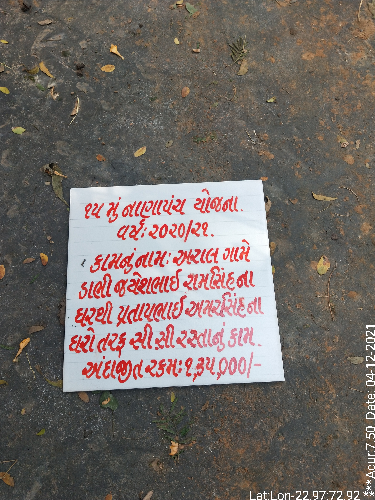 ૧૫ મું નાણાપંચ યોજના.
વર્ષ: ૨૦૨૦/૨૧.
કામનું નામ: અરાલ ગામે
ડાભી જયેશભાઈ રામસિંહના
ઘરથી પ્રતાપભાઈ અમરસિંહના
ઘરો તરફ સી.સી રસ્તાનું કામ.
અંદાજીત રકમ: ૧,૩૫,૦૦૦/-
Lat:Lon-22.97:72.92 ***Acur7.50 Date: 04-12-2021